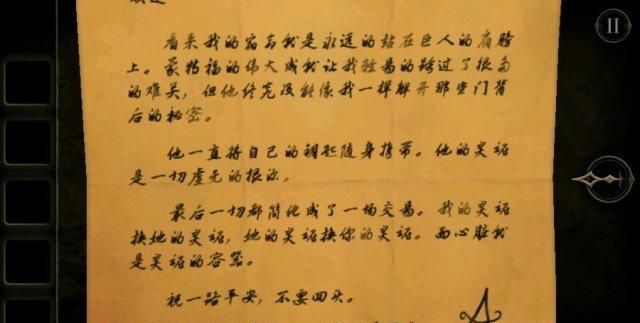 看来我的宿命就是永远的站在巨人的肩膀
上。蒙特福的伟大成就让我轻易的跨过了很多
的难关，但他终究没能像我一样解开那些门背
后的秘密。
他一直将自己的钥匙随身携带。他的灵魂
是一切虚无的根源。
最后一切都简化成了一场交易。我的灵魂
换她的灵魂，她的灵魂换你的灵魂。而心脏就
是灵魂的容器。
祝一路平安，不要回头。
A